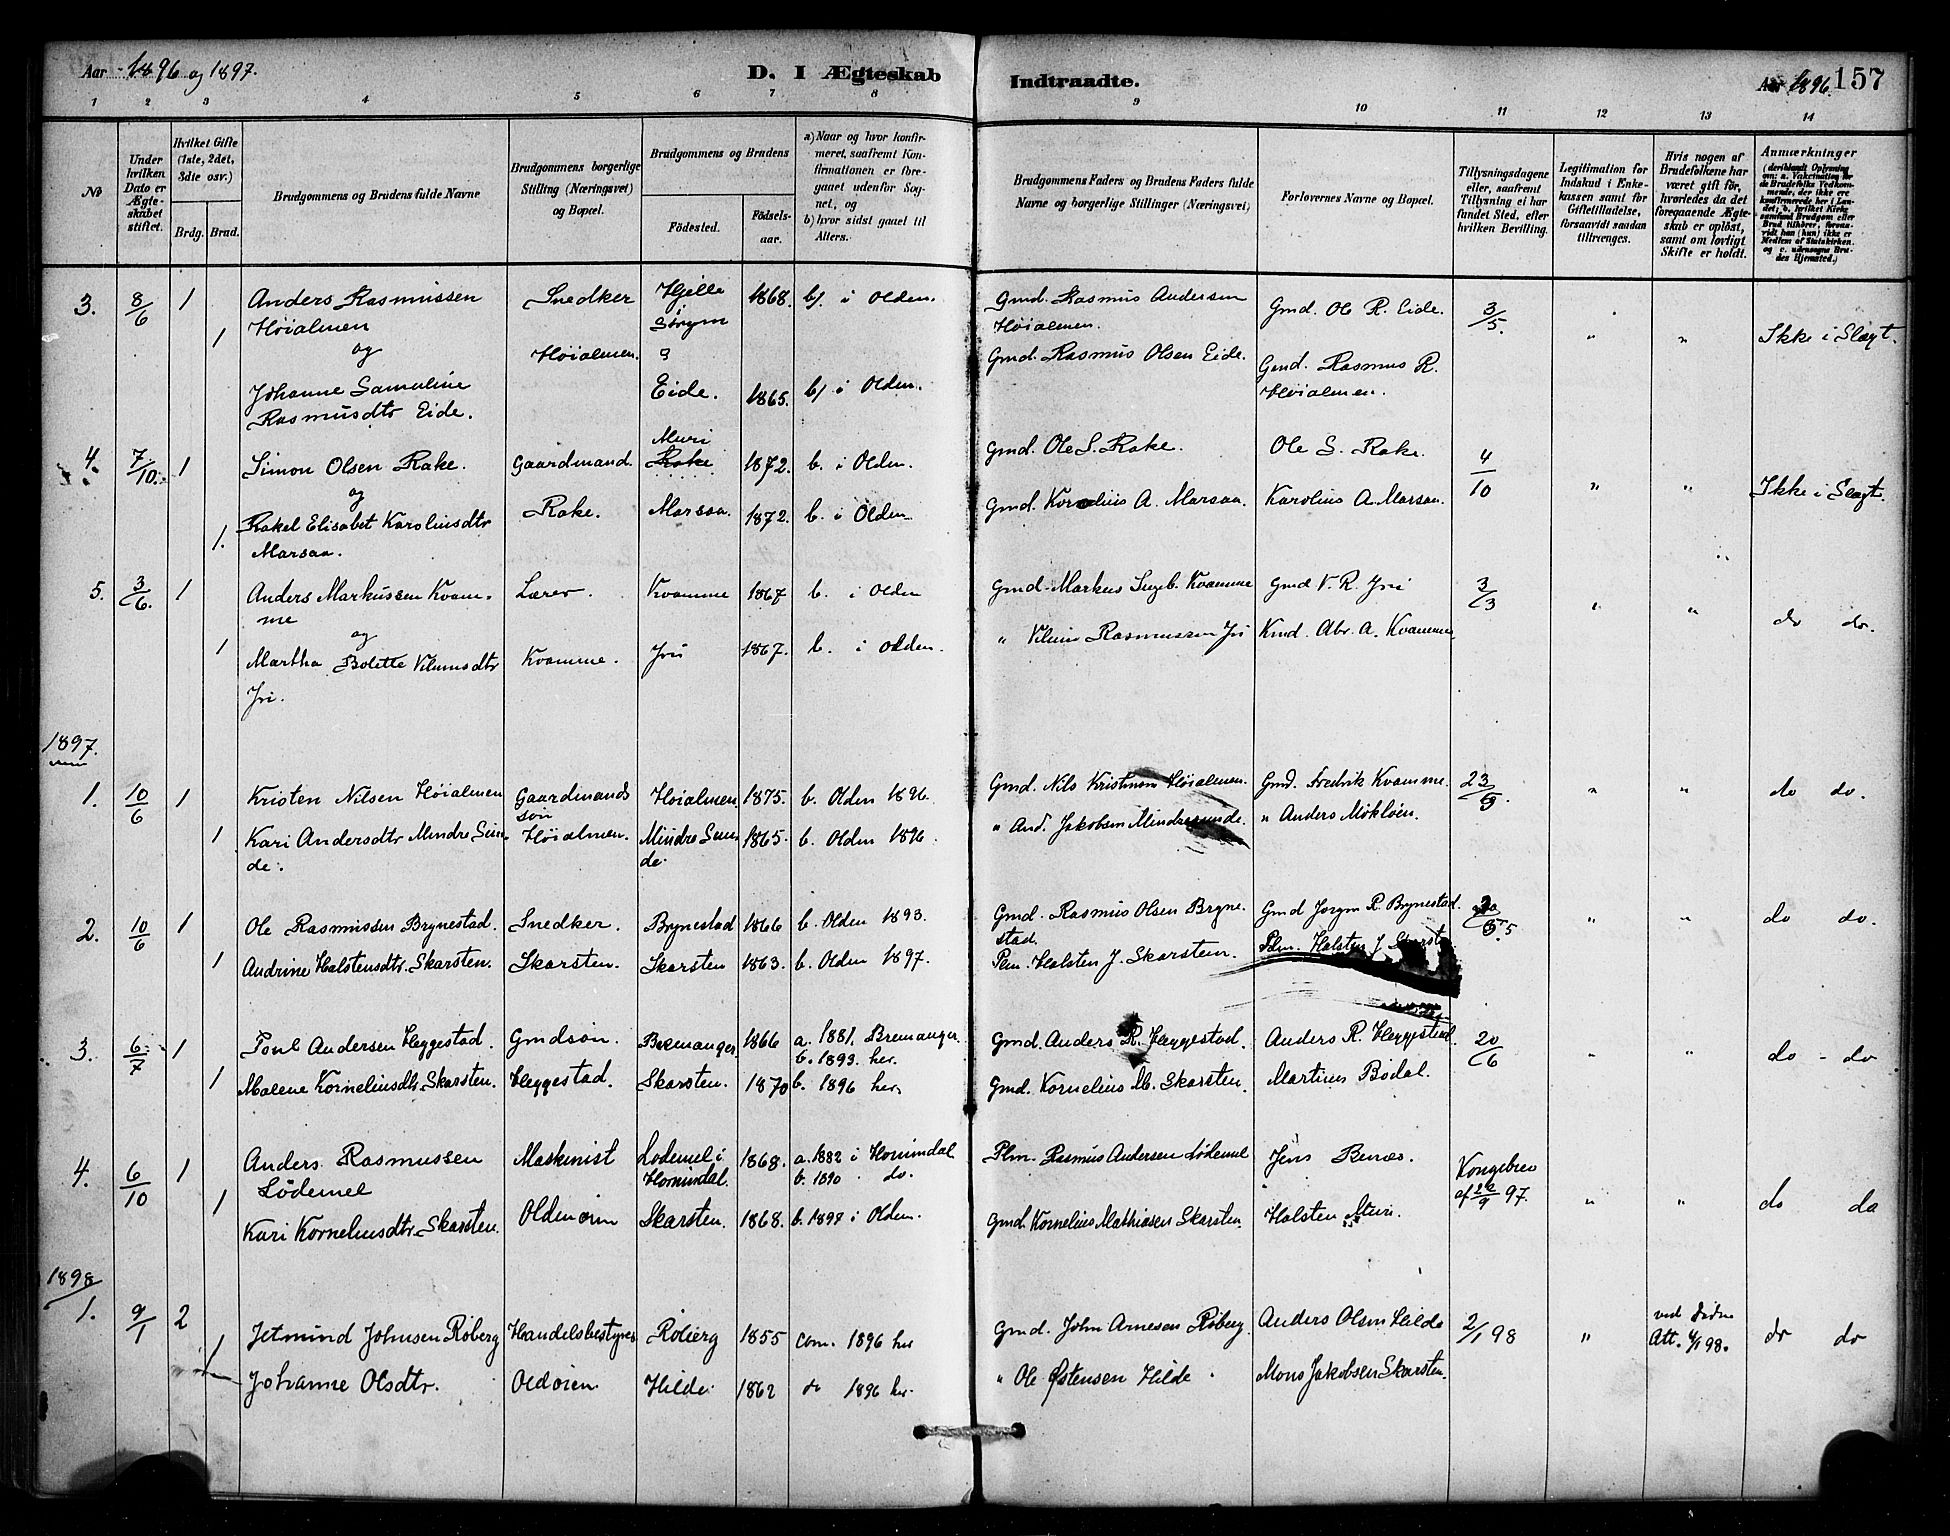 Aar 1896 og 1897.
D. I Ægteskab Indtraadte.
Aar 1896. 157
1 2 3 4 5 6 7 8 9 10 11 12 13 14
No
Under hvilken Dato er Ægteskabet stiftet.
Hvilket Gifte (1ste, 2det, 3dte osv.)
Brdg. Brud.
Brudgommens og Brudens fulde Navne
Brudgommens borgerlige Stilling (Næringsvei) og Bopæl.
Brudgommens og Brudens
Fødested. Fødselsaar.
a) Naar og hvor konfirmeret, saafremt Konfirmationen er foregaaet udenfor Sognet, og
b) hvor sidst gaaet til Alters.
Brudgommens Faders og Brudens Faders fulde Navne og borgerlige Stillinger (Næringsvei)
Forlovernes Navne og Bopæl.
Tillysningsdagene eller, saafremt Tillysning ei har fundet Sted, efter hvilken Bevilling.
Legitimation for Indskud i Enkekassen samt for Giftetilladelse, forsaavidt saadan tiltrænges.
Hvis nogen af Brudefolkene har været gift før, hvorledes da det foregaaende Ægteskab er opløst, samt om lovligt Skifte er holdt.
Anmærkninger (deriblandt Oplysning om: a. Vaktination for de Brudefolks Vedkommende, der ikke ere konfirmerede her i Landet; b. hvilket Kirkesamfund Brudgom eller Brud tilhører, forsaavidt han (hun) ikke er Medlem af Statskirken. og c. udensogns Brudes Hjemsted.)
3. 8/6 1 Anders Rasmussen Snedker Hjelle 1868. b/. i Olden. Gmd. Rasmus Andersen Gmd. Ole R. Eide. 3/5.
Høialmen Høialmen.
1 og Høialmen. Gmd. Rasmus Olsen Eide. Gmd. Rasmus R. " " Ikke i Slægt.
Johanne Samuline Eide. 1865. b/. i Olden. Høialmen.
Rasmusdtr Eide.
Muri
4. 7/10. 1 Simon Olsen Rake. Gaardmand. Rake 1872. b. i Olden. Gmd. Ole S. Rake. Ole S. Rake. 4/10 " " Ikke i Slægt.
og
1. Rakel Elisabet Karoliusdtr Rake. Marsaa. 1872. b. i Olden. Gmd. Karolius A. Marsaa. Karolius A. Marsaa.
Marsaa.
5. 3/6. 1 Anders Markussen Kvam- Lærer. Kvamme 1867 b. i Olden Gmd. Markus Ingeb. Kvamme Gmd V. R. Jri 3/3 " " do do.
me
og
1 Martha Bolette Vilumsdtr Kvamme. Jri 1867. b. i Olden. " Vilum Rasmussen Jri Kmd. Abr. A. Kvamme
Jri.
1897.
1. 10/6 1 Kristen Nilsen Høialmen Gaardmands Høialmen. 1875. b. Olden 1896. Gmd. Nils Kristensen Høialmen. Gmd. Fredrik Kvamme. 23/5. " " do do.
søn
1 Kari Andersdtr Mindre Sun- Høialmen. Mindre Sun- 1865. b. Olden 1896. " And. Jakobsen Mindresunde. " Anders Mykløen.
de. de.
2. 10/6 1 Ole Rasmussen Brynestad. Snedker. Brynestad 1866 b. Olden 1893. Gmd. Rasmus Olsen Bryne- Gmd Jørgen R. Brynestad. " " do do.
stad.
1 Andrine Halstensdtr. Skarsten. Skarsten. Skarsten 1863. b. Olden 1897. Plm. Halsten J. Skarsten. Plm. Halsten J. Skarsten
3. 6/7 1 Poul Andersen Heggestad. Gmdsøn. Bremanger 1866 a. 1881. Bremanger Gmd. Anders R. Heggestad. Anders R. Heggestad. 20/6 " " do - do
b. 1893. her.
1 Malene Kornelinsdtr. Skarsten. Heggestad. Skarsten. 1870 b. 1896 her. Gmd. Kornelius M. Skarsten. Martinus Bødal.
4. 6/10 1 Anders Rasmussen Maskinist Lødemel i 1868. a. 1882 i Hornindal Plm. Rasmus Andersen Lødemel Jens Benæs. Kongebrev
Lødemel Hornindal. b. 1890 do. af 22/9 97. " " do do
1 Kari Kornelinsdtr. Skarsten. Oldenøren Skarsten. 1868. b. 1897 i Olden. Gmd. Kornelius Mathiasen Skarsten. Halsten Muri.
1898
1. 9/1 2 Jetmund Johnsen Røberg Handelsbestyrer Røberg 1855 com. 1896 her Gmd. John Arnesen Røberg. Anders Olsen Hilde 2/1 98 " ved
Att. 4/1 98. do do
1 Johanne Olsdtr. Oldøren Hilde 1862 do 1896 her. " Ole Østensen Hilde Mons Jakobsen Skarsten.